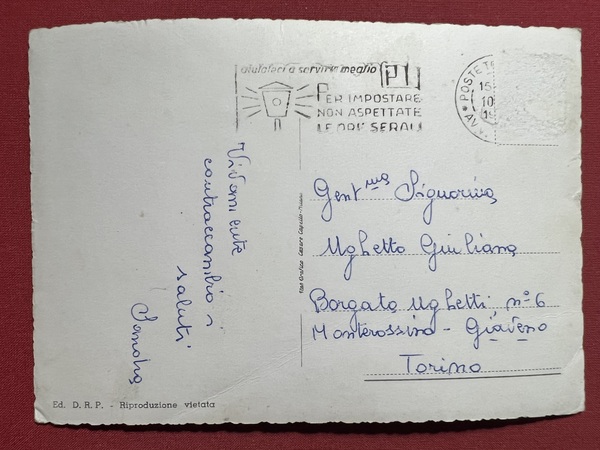 aiutateci a servirvi meglio
PT
PER IMPOSTARE
NON ASPETTATE
LE ORE SERALI
POSTE
15
10
19
AV
Vivamente
contraccambio i
saluti
Sandra
Gent.ma Signorina
Ughetto Giuliana
Borgata Ughetti n° 6
Monterossino - Giaveno
Torino
Ed. D. R. P. - Riproduzione vietata